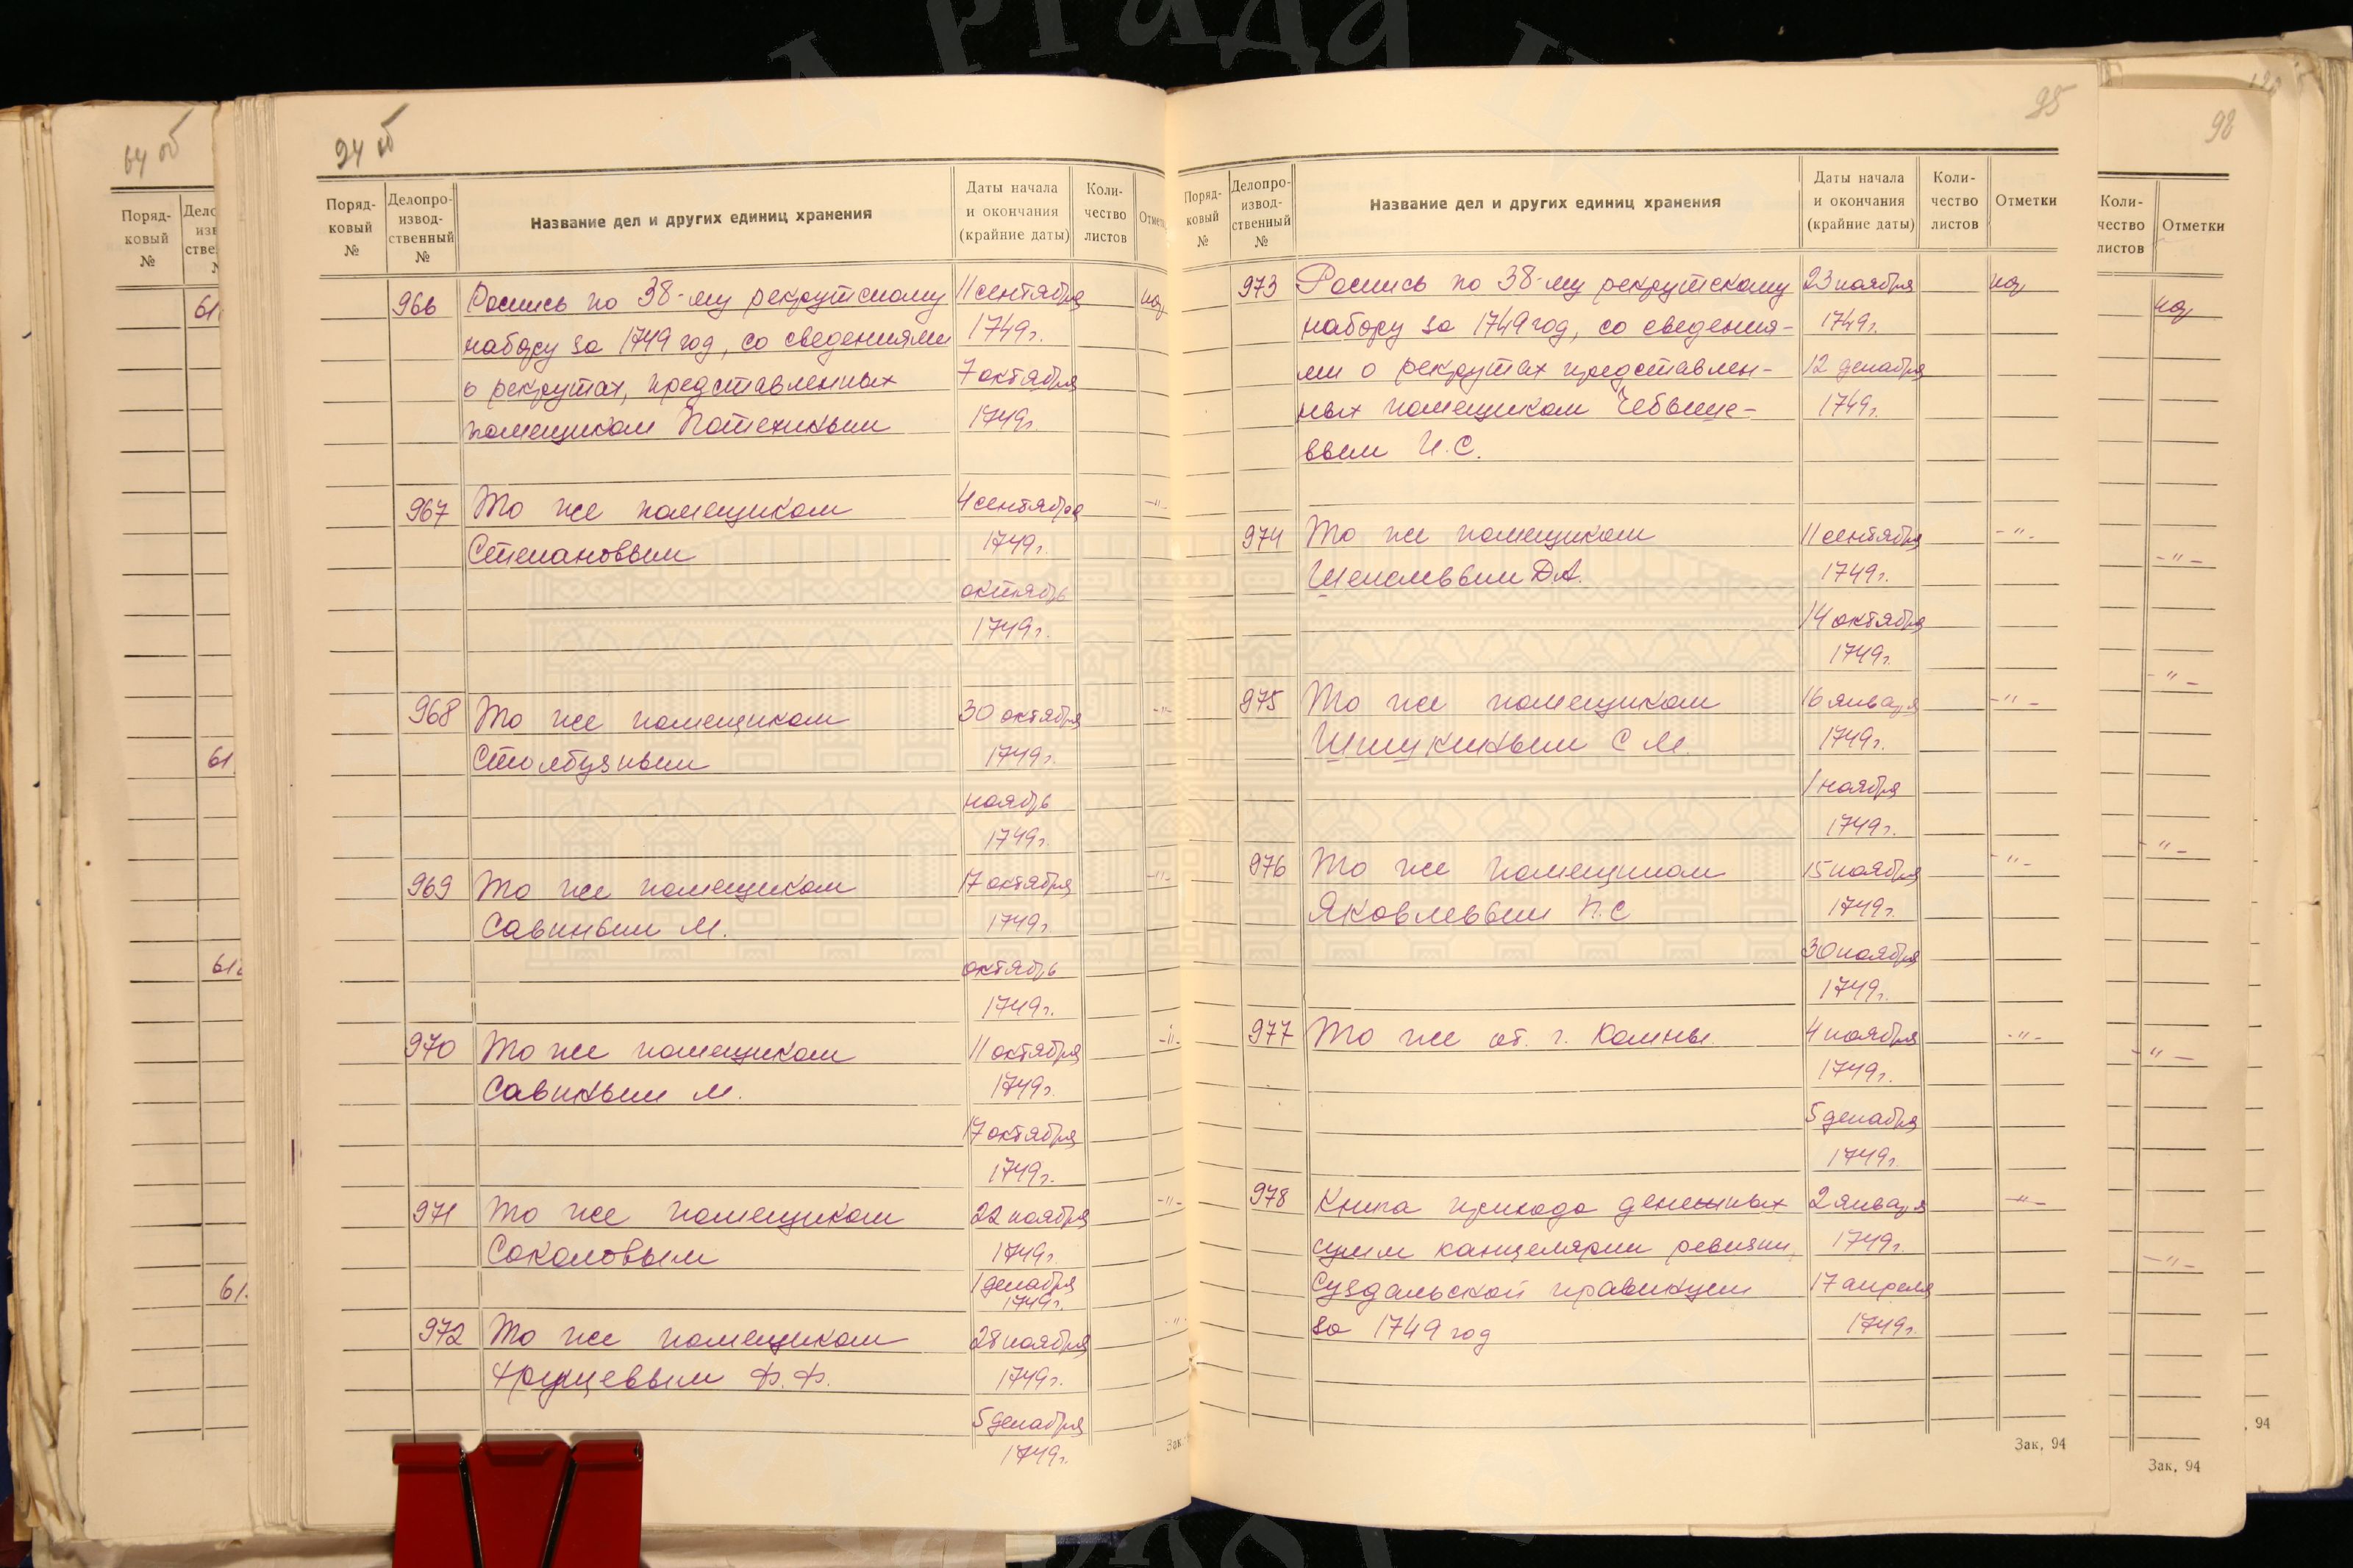 94 об
Поряд-
ковый
№
Делопро-
извод-
ственный
№
Название дел и других единиц хранения
Даты начала
и окончания
(крайние даты)
Коли-
чество
листов
966 Роспись по 38-му рекрутскому 11 сентября
набору за 1749 год, со сведениями 1749г.
о рекрутах, представленных 7 октября
помещиком Потехиным 1749г.
967 То же помещиком 4 сентября -"-
Степановым 1749г.
октябрь
1749г.
968 То же помещиком 30 октября -"-
Столбузным 1749г.
ноябрь
1749г.
969 То же помещиком 17 октября -"-
Савиным М. 1749г.
октябрь
1749г.
970 То же помещиком 11 октября -"-
Савиным М. 1749г.
17 октября
1749г.
971 То же помещиком 22 ноября -"-
Соколовым 1749г.
1 декабря
1749г.
972 То же помещиком 28 ноября -"-
Ф.Ф. 1749г.
5 декабря
1749г.
95
Поряд-
ковый
№
Делопро-
извод-
ственный
№
Название дел и других единиц хранения
Даты начала
и окончания
(крайние даты)
Коли-
чество
листов
Отметки
973 Роспись по 38-му рекрутскому 23 ноября
набору за 1749 год, со сведения- 1749г.
ми о рекрутах представлен- 12 декабря
ных помещиком Чебыше- 1749г.
вым И.С.
974 То же помещиком 11 сентября -"-
Щепелевым Д.А. 1749г.
14 октября
1749г.
975 То же помещиком 16 января -"-
Шишкиным С М. 1749г.
1 ноября
1749г.
976 То же помещиком 15 ноября -"-
Яковлевым П.С 1749г.
30 ноября
1749г.
977 То же от. г. Коломны. 4 ноября -"-
1749г.
5 декабря
1749г.
978 Книга прихода денежных 2 января -"-
сумм канцелярии ревизии, 1749г.
Суздальской провинции 17 апреля
за 1749 год 1749г.
Зак, 94
64 об
Поряд-
ковый
№
98
Коли-
чество
листов
Отметки
Зак, 94